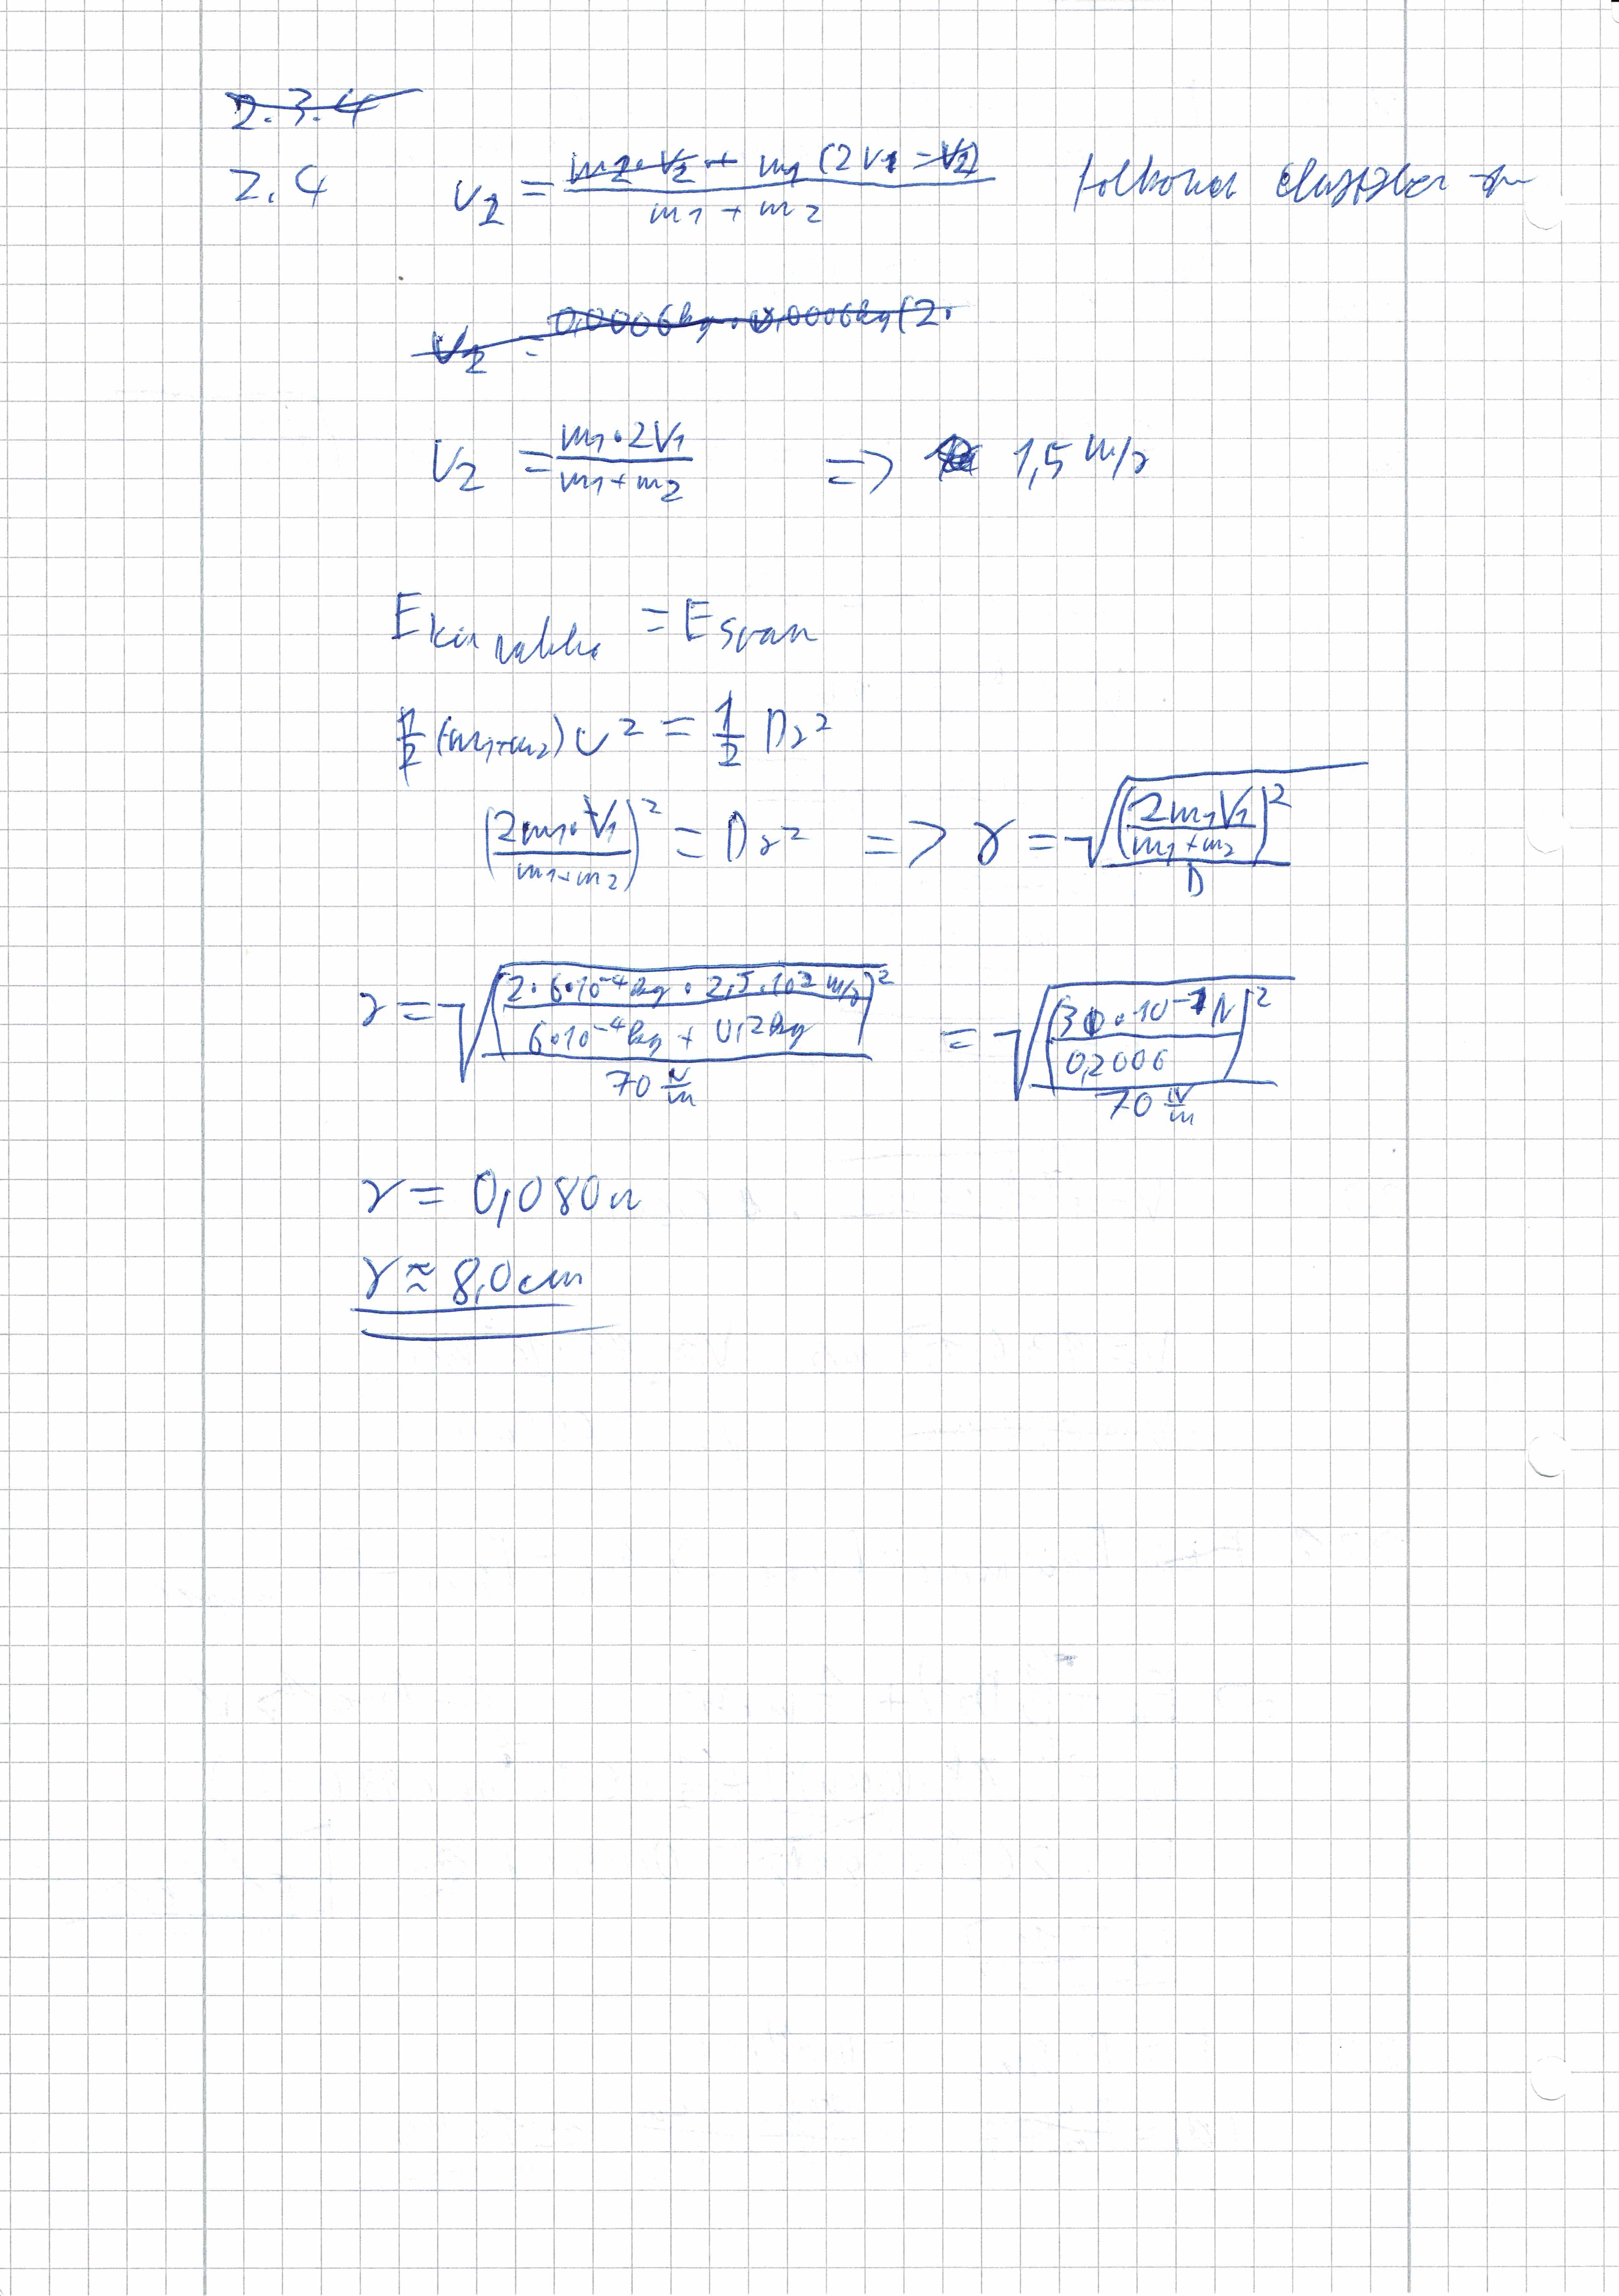 2.3.4
2.4 v₂ = (m₂·v₂ + m₁(2v₁ - v₂))/(m₁ + m₂)
v₂ = 0,0006kg · 0,0006kg (2·
v₂ = (m₁·2v₁)/(m₁+m₂) => 1,5 m/s
E kin = E span
1/2 (m₁+m₂) v² = 1/2 Ds²
((2m₁·v₁)/(m₁+m₂))² = Ds² => s = √(((2m₁v₁)/(m₁+m₂))²/D)
s = √(((2·6·10⁻⁴kg · 2,5·10² m/s)/(6·10⁻⁴kg + 0,2kg))²/(70 N/m)) = √(((30·10⁻¹N)/(0,2006))²/(70 N/m))
s = 0,080m
s ≈ 8,0cm